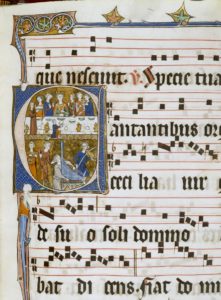 que nesciunt. ℣. Specie tua
Cantantibus or
ceci lia uir
de su o soli domino
bat di cens. fiat do mi